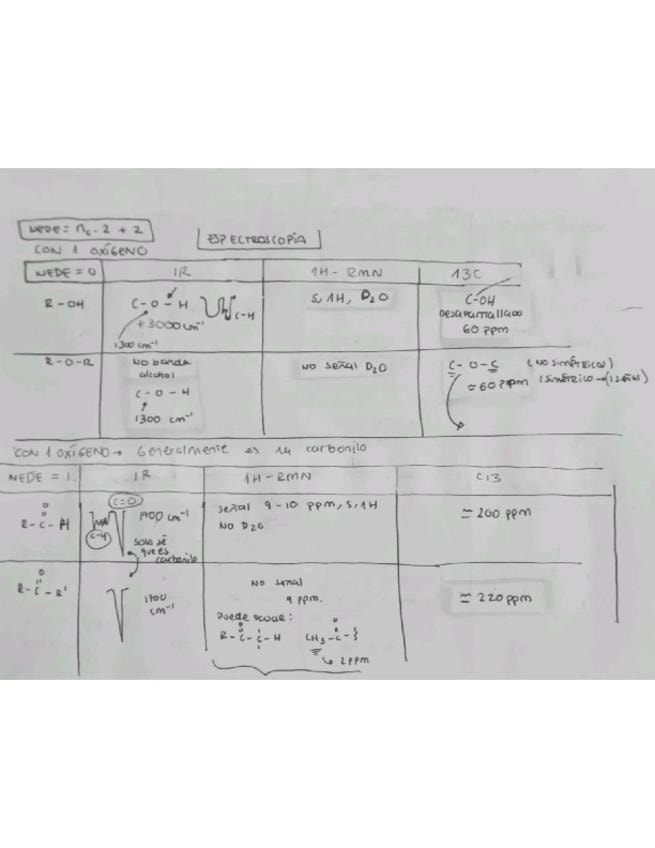 NEDE = nc · 2 + 2
ESPECTROSCOPÍA
CON 1 OXÍGENO
NEDE = 0 IR 1H - RMN 13C
R - OH C - O - H C-H S, 1H, D2O C-OH
+3000 cm-1 Desapantallado
1300 cm-1 60 ppm
R - O - R No banda No señal D2O C - O - C (No simétricos)
alcohol ≈ 60 ppm (simétrico → 1 señal)
C - O - H
1300 cm-1
CON 1 OXÍGENO → Generalmente es un carbonilo
NEDE = 1. IR 1H - RMN C13
O
R - C - H C=O 1700 cm-1 señal 9-10 ppm, S, 1H ≈ 200 ppm
C-H NO D2O
solo sé
que es
carbonilo
O
R - C - R' 1700 NO señal ≈ 220 ppm
cm-1 9 ppm.
Puede pasar:
O O
R - C - C - H CH3 - C -
2 ppm